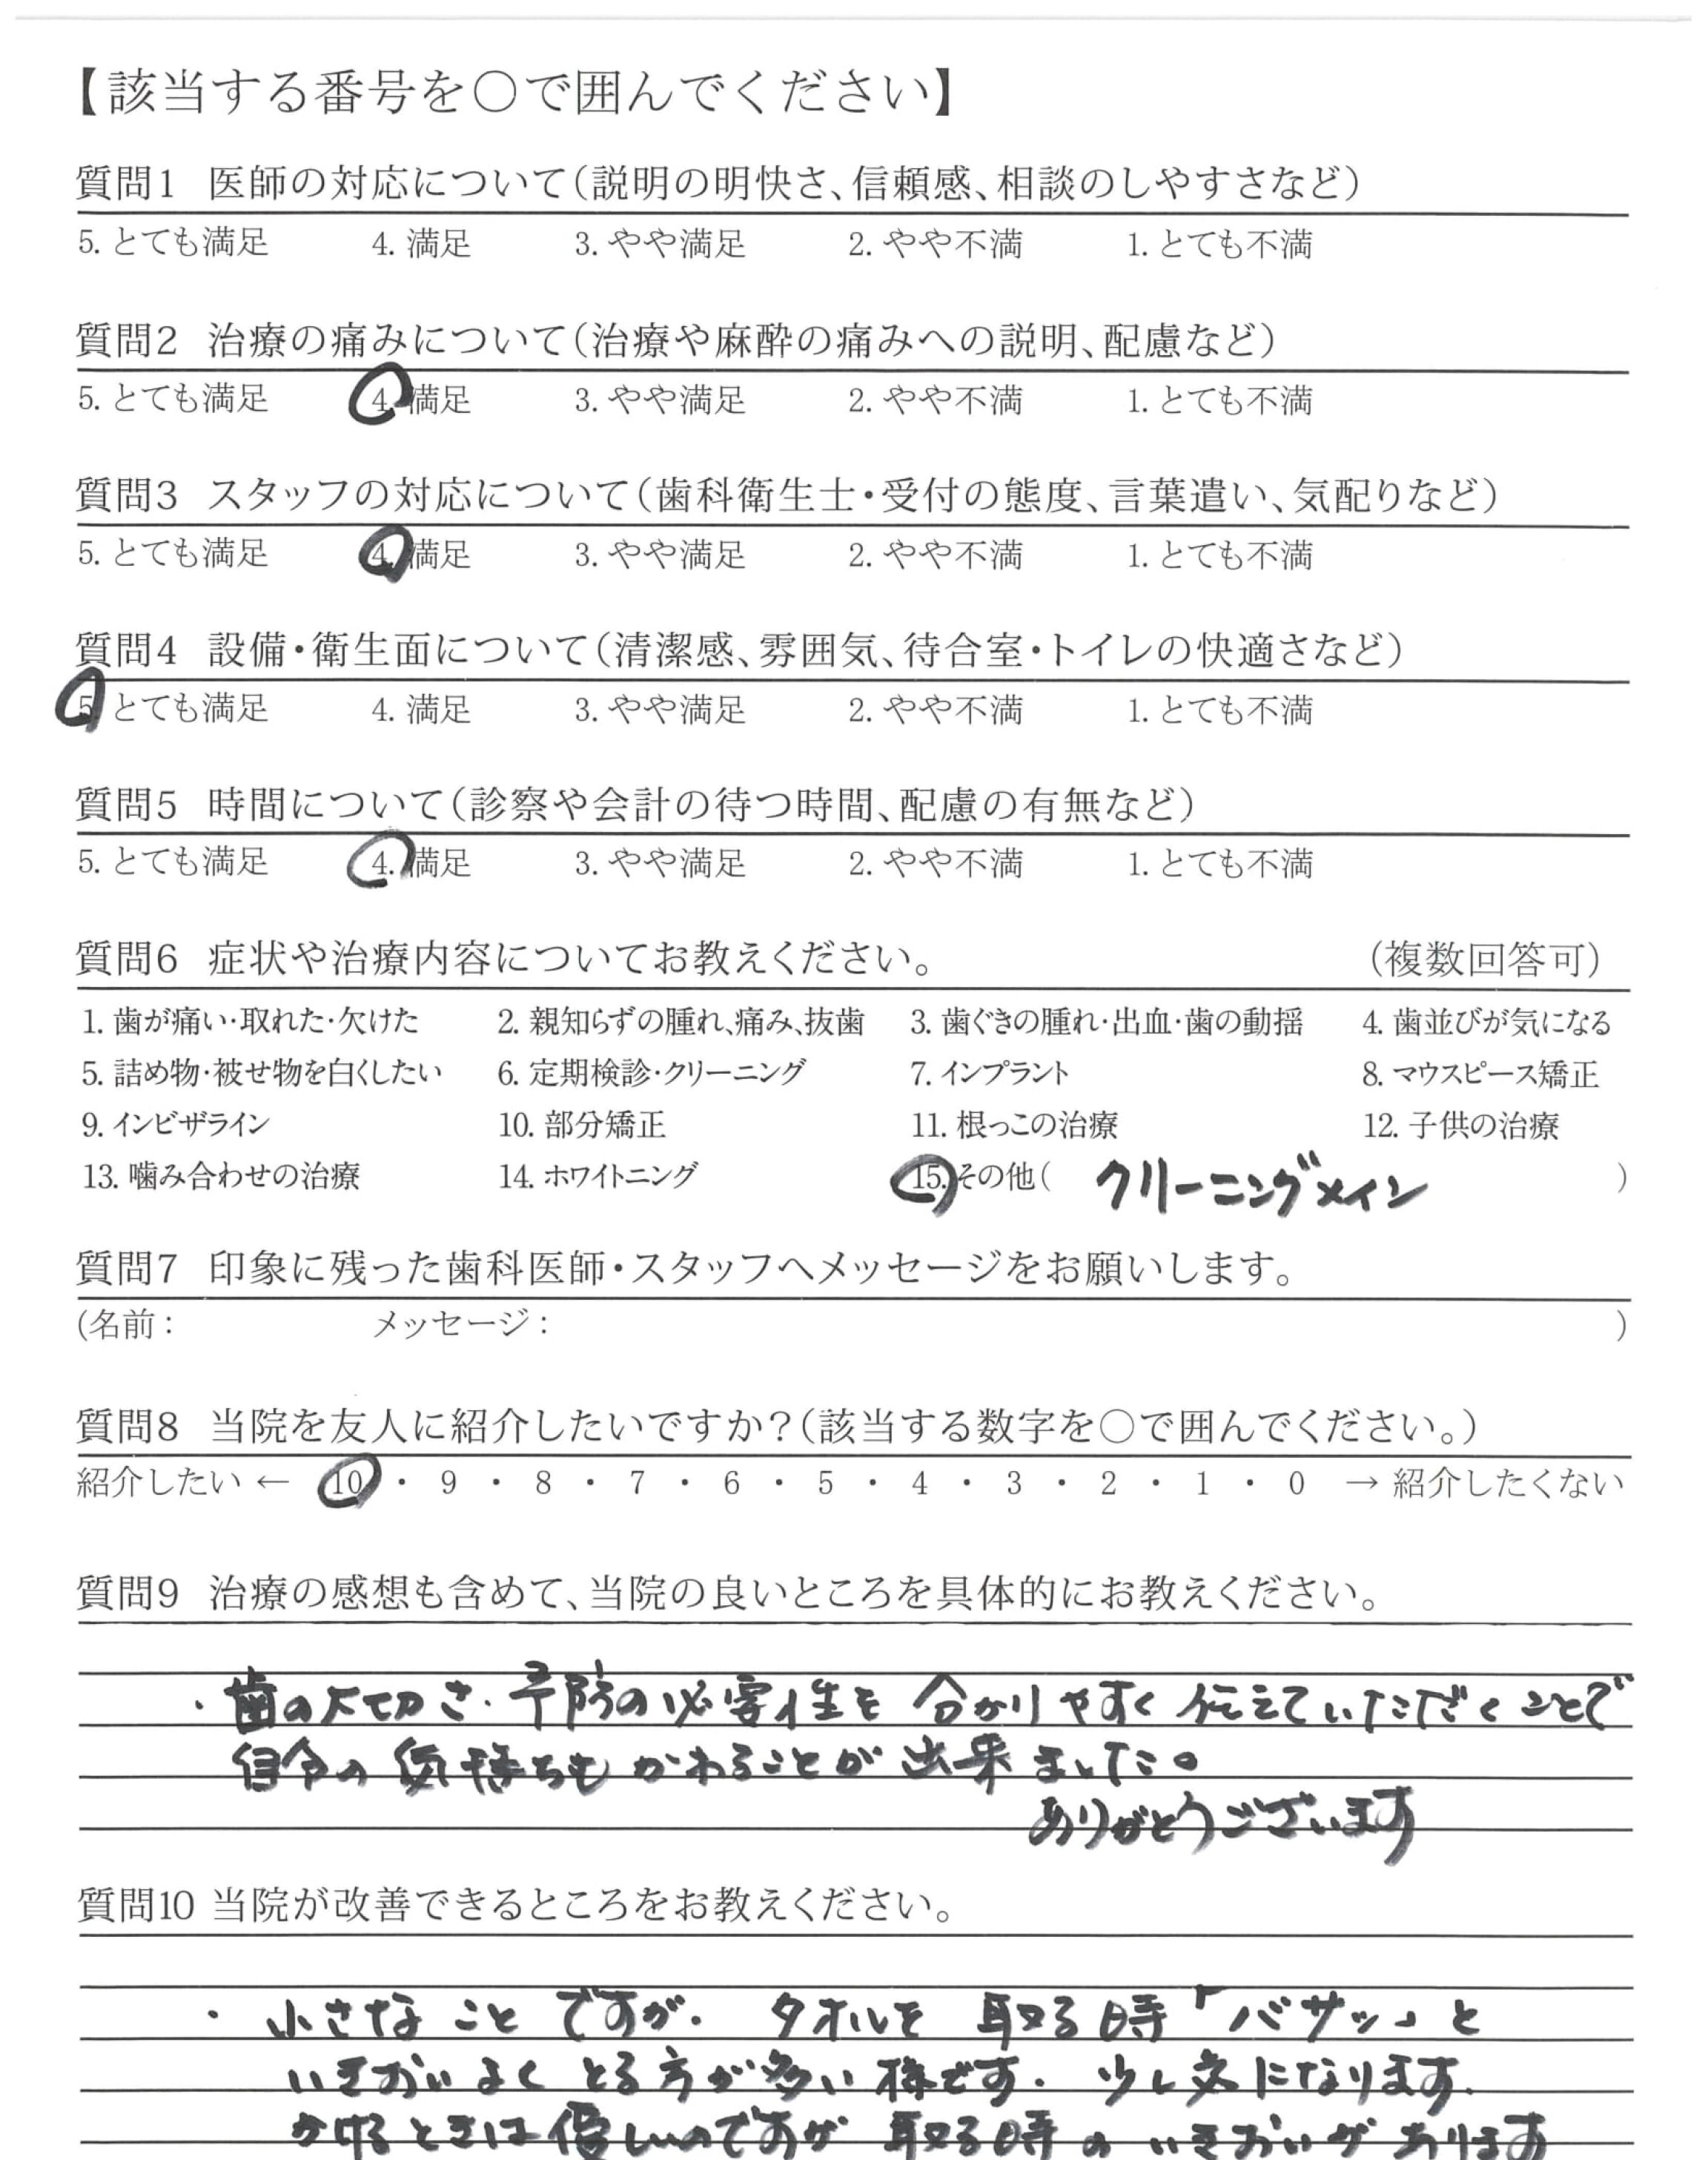 【該当する番号を○で囲んでください】
質問1 医師の対応について(説明の明快さ、信頼感、相談のしやすさなど)
5. とても満足 4. 満足 3. やや満足 2. やや不満 1. とても不満
質問2 治療の痛みについて(治療や麻酔の痛みへの説明、配慮など)
5. とても満足 4. 満足 3. やや満足 2. やや不満 1. とても不満
質問3 スタッフの対応について(歯科衛生士・受付の態度、言葉遣い、気配りなど)
5. とても満足 4. 満足 3. やや満足 2. やや不満 1. とても不満
質問4 設備・衛生面について(清潔感、雰囲気、待合室・トイレの快適さなど)
5. とても満足 4. 満足 3. やや満足 2. やや不満 1. とても不満
質問5 時間について(診察や会計の待つ時間、配慮の有無など)
5. とても満足 4. 満足 3. やや満足 2. やや不満 1. とても不満
質問6 症状や治療内容についてお教えください。 (複数回答可)
1. 歯が痛い・取れた・欠けた 2. 親知らずの腫れ、痛み、抜歯 3. 歯ぐきの腫れ・出血・歯の動揺 4. 歯並びが気になる
5. 詰め物・被せ物を白くしたい 6. 定期検診・クリーニング 7. インプラント 8. マウスピース矯正
9. インビザライン 10. 部分矯正 11. 根っこの治療 12. 子供の治療
13. 噛み合わせの治療 14. ホワイトニング 15. その他( クリーニングメイン )
質問7 印象に残った歯科医師・スタッフへメッセージをお願いします。
(名前: メッセージ: )
質問8 当院を友人に紹介したいですか?(該当する数字を○で囲んでください。)
紹介したい ← 10 ・ 9 ・ 8 ・ 7 ・ 6 ・ 5 ・ 4 ・ 3 ・ 2 ・ 1 ・ 0 → 紹介したくない
質問9 治療の感想も含めて、当院の良いところを具体的にお教えください。
・歯の大切さ・予防の必要性を分かりやすく伝えていただくことで
自分の気持ちもかわることが出来ました。
ありがとうございます
質問10 当院が改善できるところをお教えください。
・小さなことですが、タオルを取る時「バサッ」と
いきおいよくとる方が多い様です。少し気になります。
かけるときは優しいのですが取る時のいきおいがあります